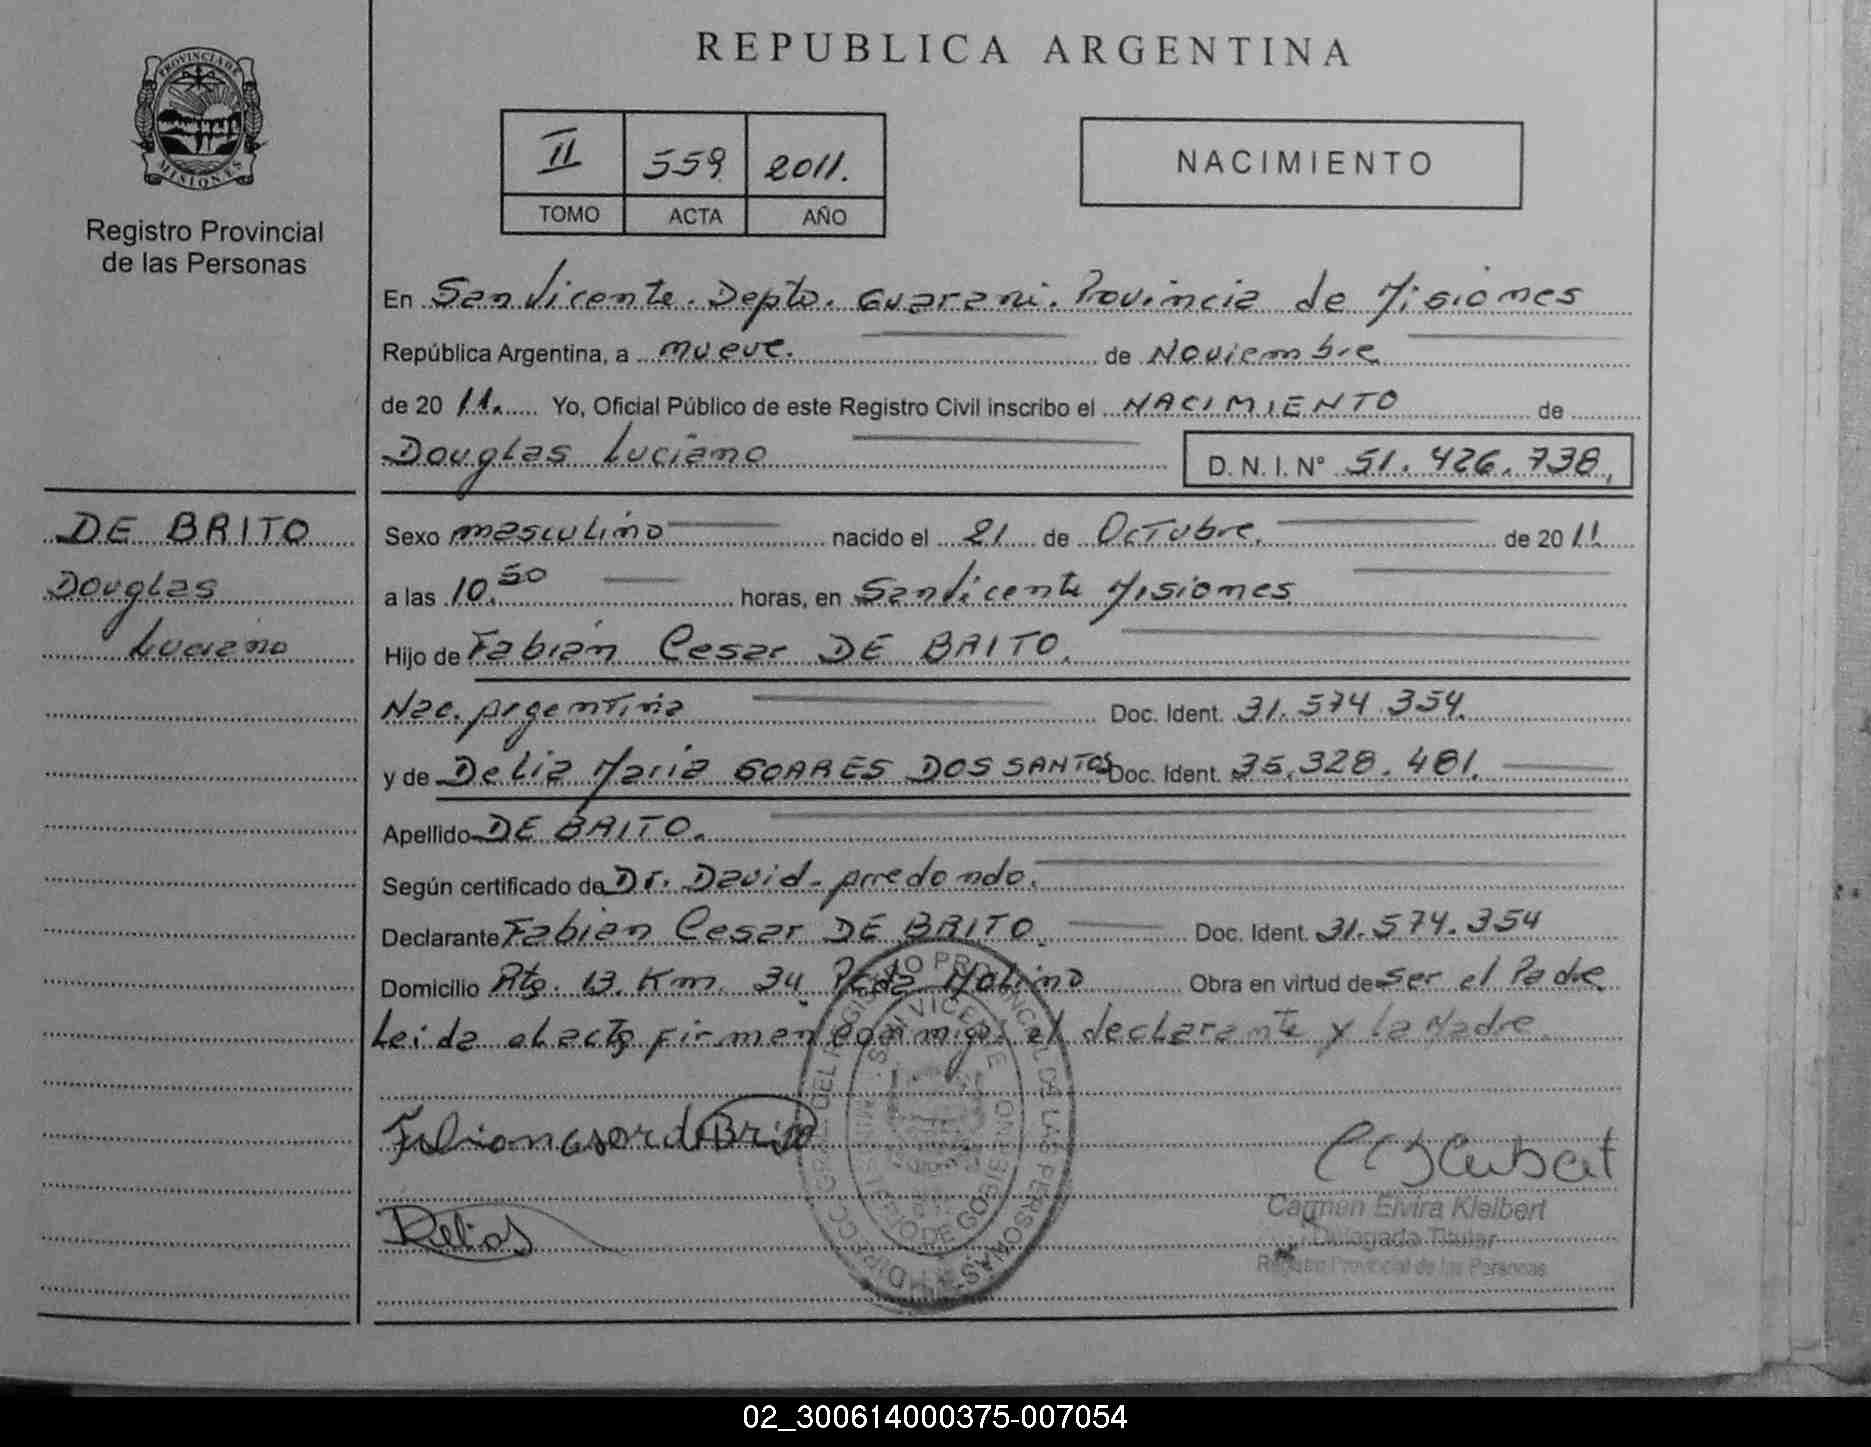 REPUBLICA ARGENTINA
PROVINCIA DE
MISIONES
Registro Provincial
de las Personas
II 559 2011.
TOMO ACTA AÑO
NACIMIENTO
En San Vicente. Depto. Guarani. Provincia de Misiones
República Argentina, a nueve. de Noviembre
de 20 11. Yo, Oficial Público de este Registro Civil inscribo el NACIMIENTO de
Douglas Luciano D. N. I. N° 51.426.738,
DE BRITO
Douglas
Luciano
Sexo masculino nacido el 21 de Octubre. de 2011
a las 10.50 horas, en San Vicente Misiones
Hijo de Fabian Cesar DE BRITO.
Nac. Argentina Doc. Ident. 31.574.354.
y de Delia Maria SOARES DOS SANTOS Doc. Ident. 35.328.481.
Apellido DE BRITO.
Según certificado de Dr. David Arredondo.
Declarante Fabian Cesar DE BRITO. Doc. Ident. 31.574.354
Domicilio Rta. 13. Km. 34 Molino Obra en virtud de ser el Padre
Leida el acta firman conmigo el declarante y la Madre
Fabian cesar de Brito
Carmen Elvira Kleibert
Delegada Titular
Registro Provincial de las Personas
02_300614000375-007054